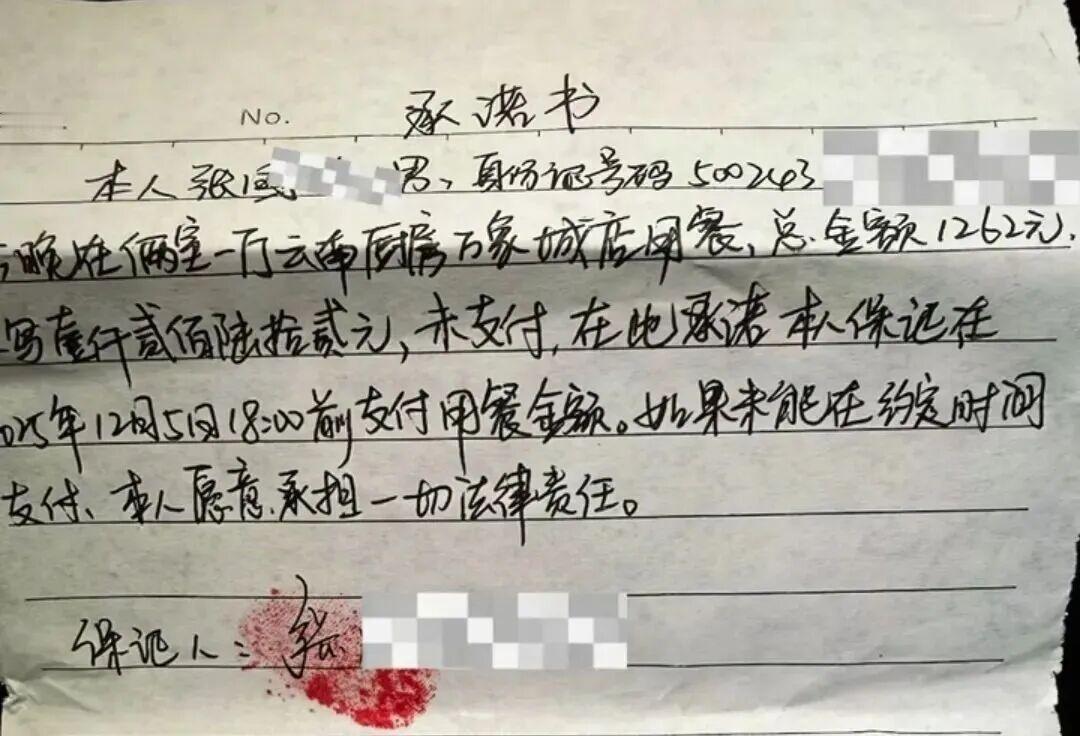 No. 承诺书
本人张 男、身份证号码500243
晚在俩室一厅云南厨房万象城店用餐，总金额1262元.
写壹仟贰佰陆拾贰元，未支付，在此承诺本人保证在
025年12月5日18:00前支付用餐金额。如果未能在约定时间
支付、本人愿意承担一切法律责任。
保证人：张